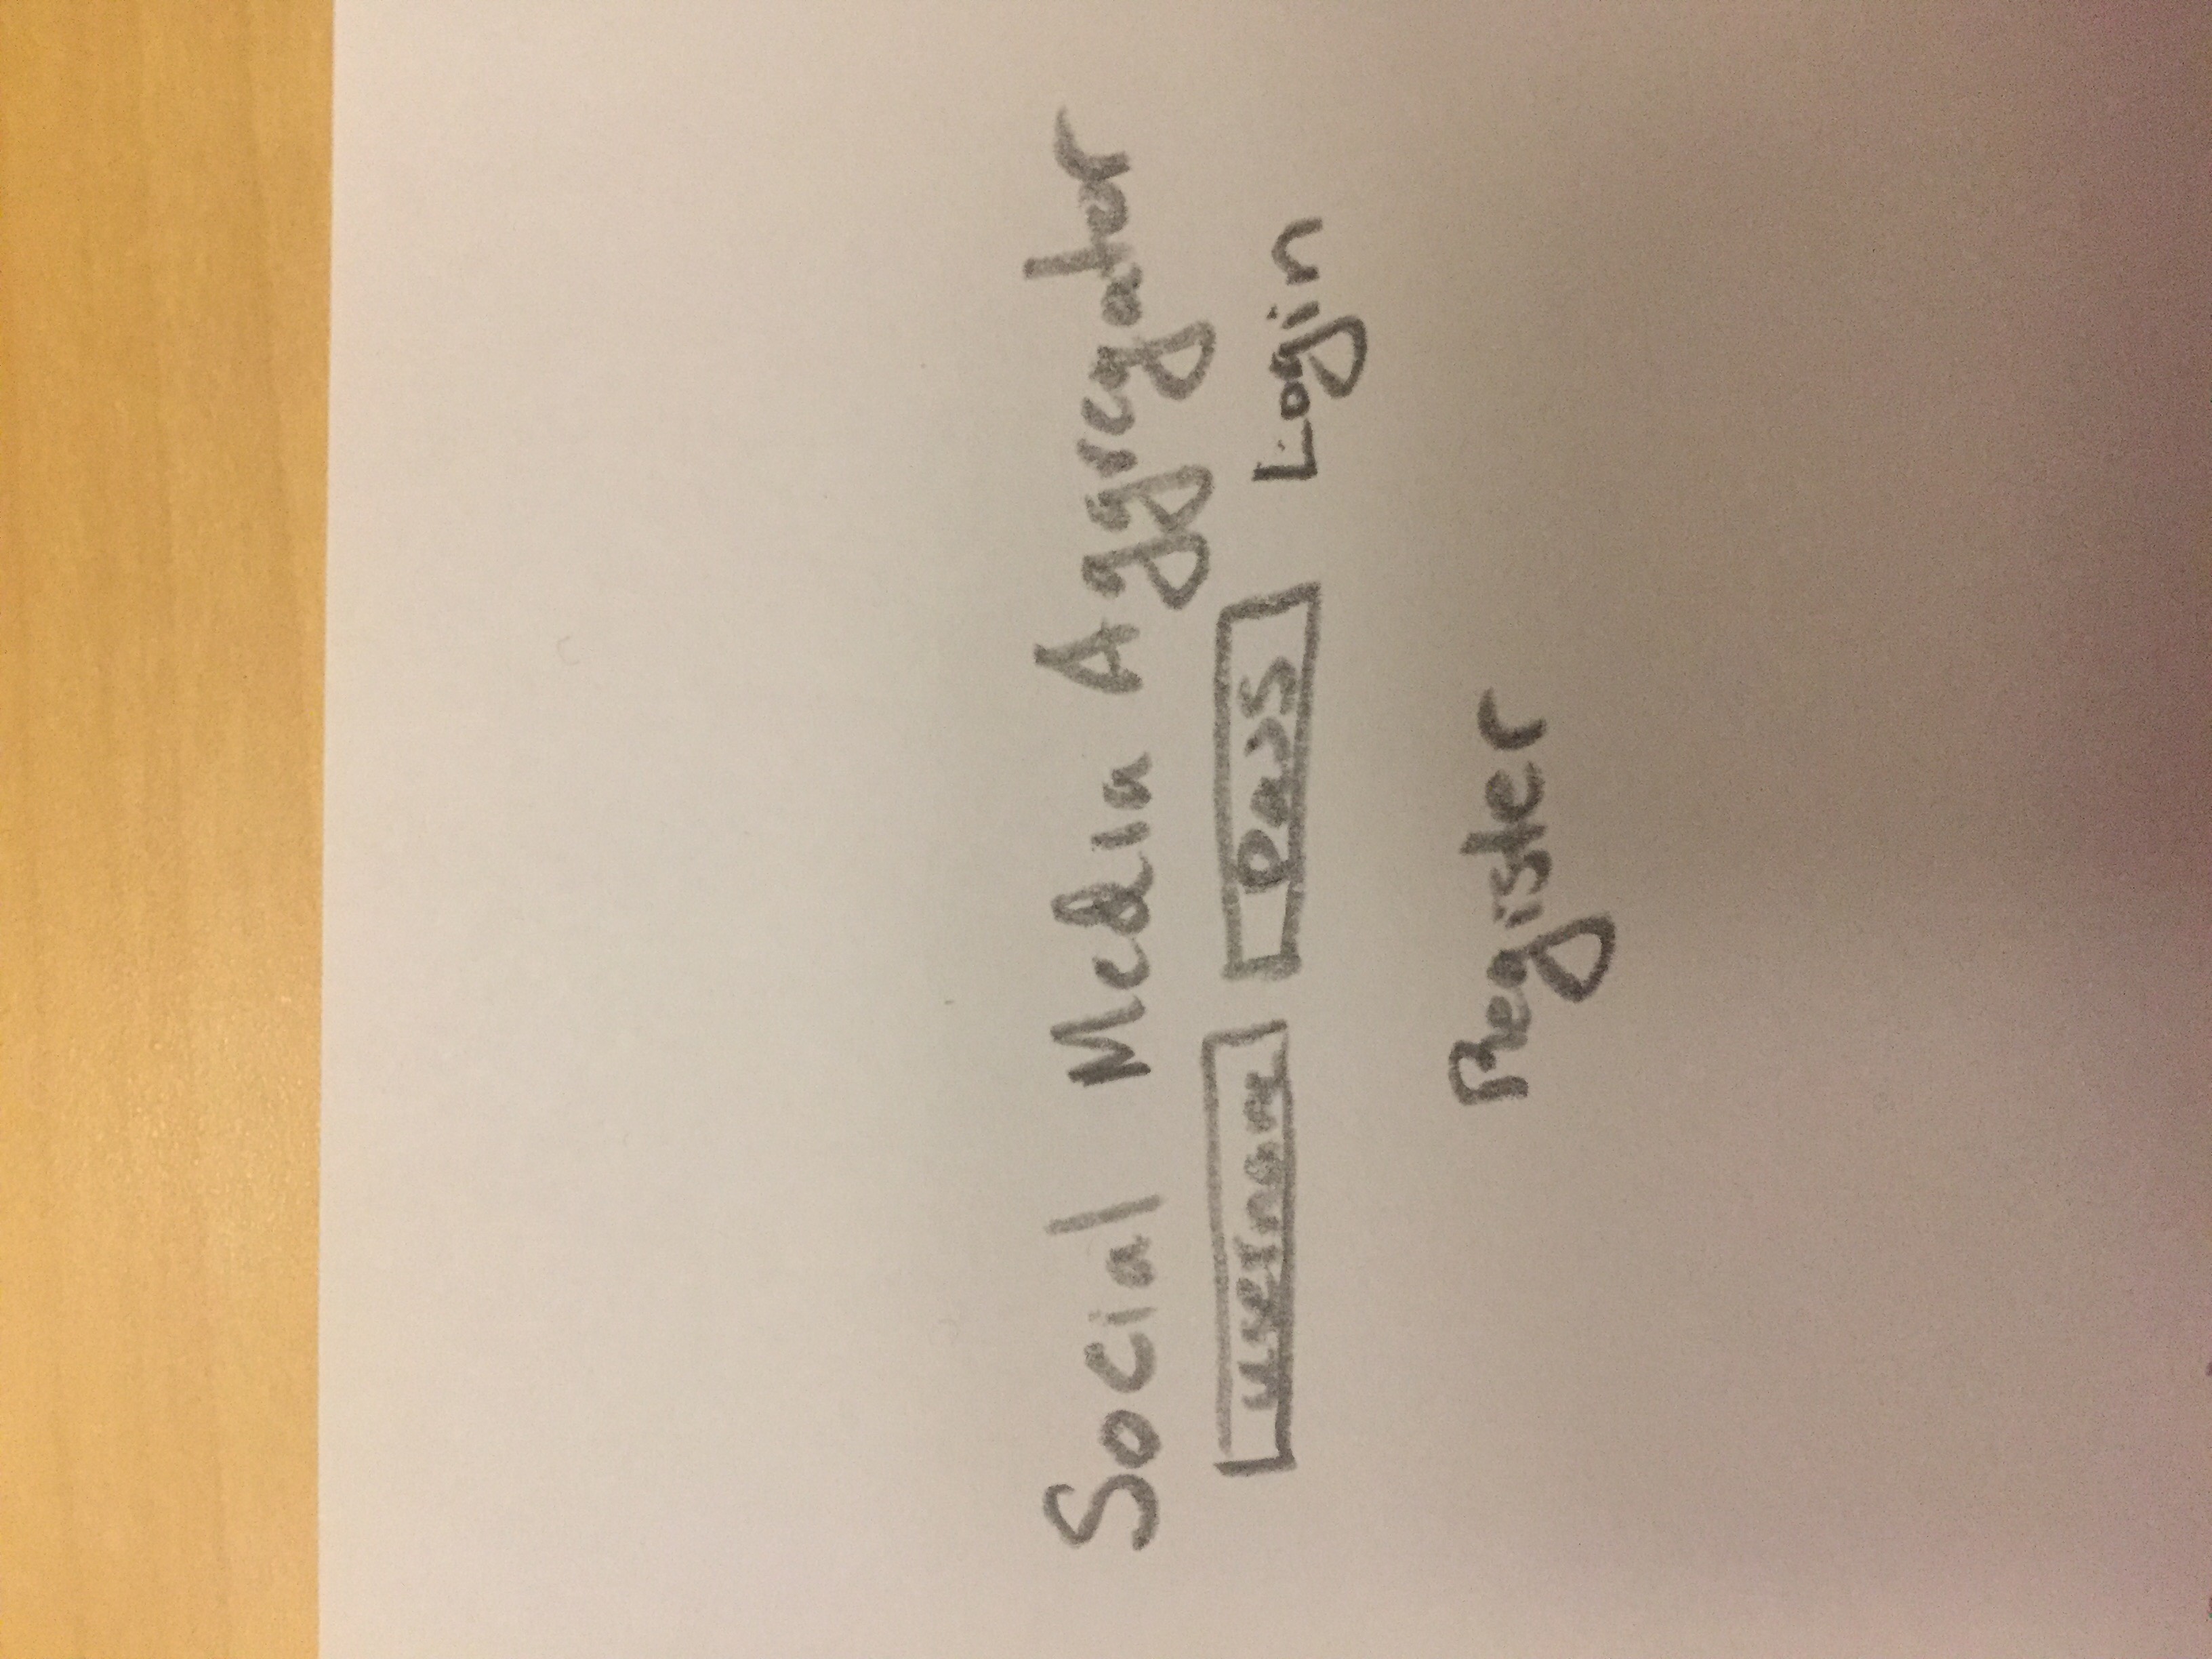 Social Media Aggregator
username pass Login
Register